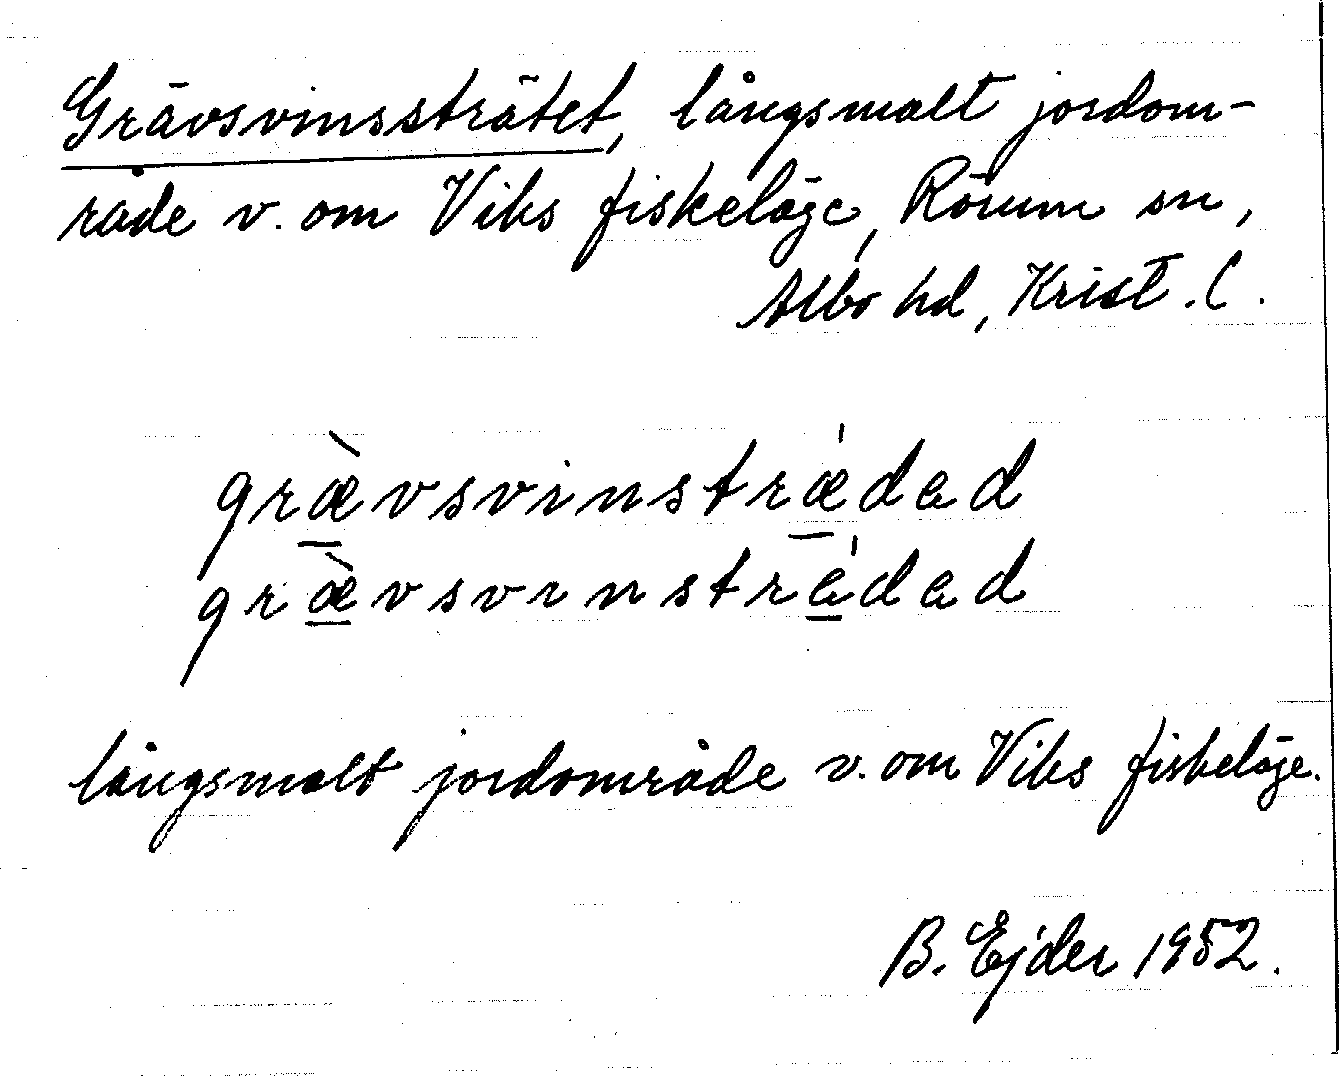 Grävsvinssträtet, långsmalt jordom-
råde v. om Viks fiskeläge, Rörum sn,
Albo hd, Krist. l.
græ̀vsvinstrǽdad
græ̀vsvinstrǽdad
långsmalt jordområde v. om Viks fiskeläge.
B. Ejder 1952.